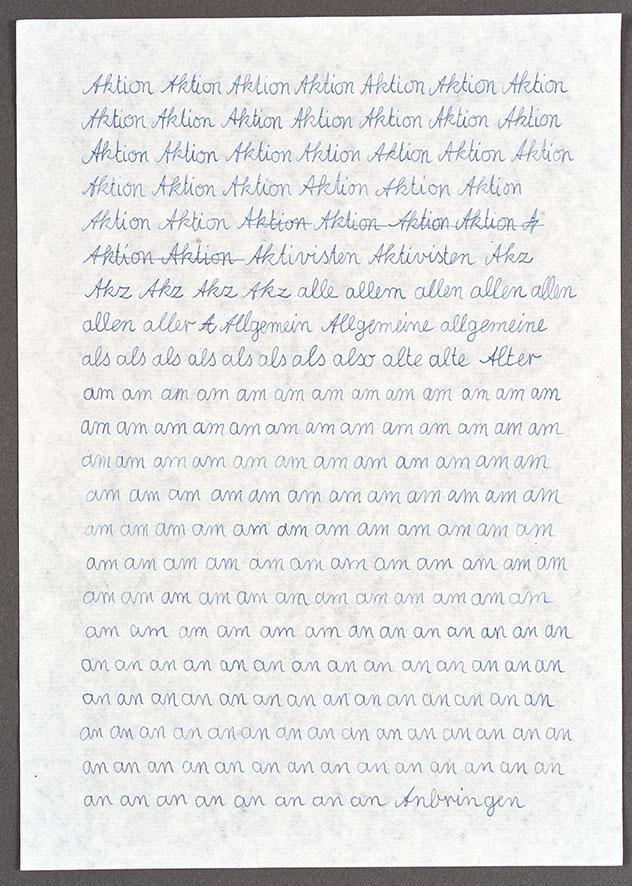 Aktion Aktion Aktion Aktion Aktion Aktion Aktion
Aktion Aktion Aktion Aktion Aktion Aktion Aktion
Aktion Aktion Aktion Aktion Aktion Aktion Aktion
Aktion Aktion Aktion Aktion Aktion Aktion
Aktion Aktion Aktion Aktion Aktion Aktion A
Aktion Aktion Aktivisten Aktivisten Akz
Akz Akz Akz Akz alle allem allen allen allen
allen aller A Allgemein Allgemeine allgemeine
als als als als als als als also alte alte Alter
am am am am am am am am am am am am am
am am am am am am am am am am am am am
am am am am am am am am am am am am
am am am am am am am am am am am am
am am am am am am am am am am am am
am am am am am am am am am am am am
am am am am am am am am am am am am
am am am am am am an an an an an an an
an an an an an an an an an an an an an
an an an an an an an an an an an an an an
an an an an an an an an an an an an an an
an an an an an an an an an an an an an
an an an an an an an an Anbringen